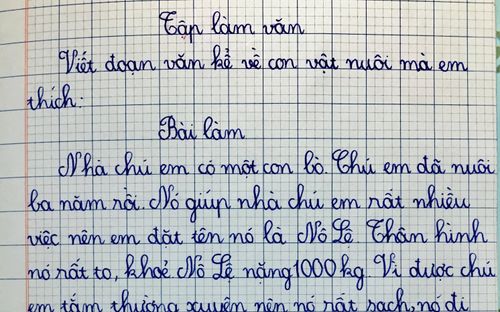 Tập làm văn
Viết đoạn văn kể về con vật nuôi mà em
thích:
Bài làm
Nhà chú em có một con bò. Chú em đã nuôi
ba năm rồi. Nó giúp nhà chú em rất nhiều
việc nên em đặt tên nó là Nô Lê. Thân hình
nó rất to, khoẻ. Nô Lệ nặng 1000 kg. Vì được chú
em tắm thường xuyên nên nó rất sạch, nó đi